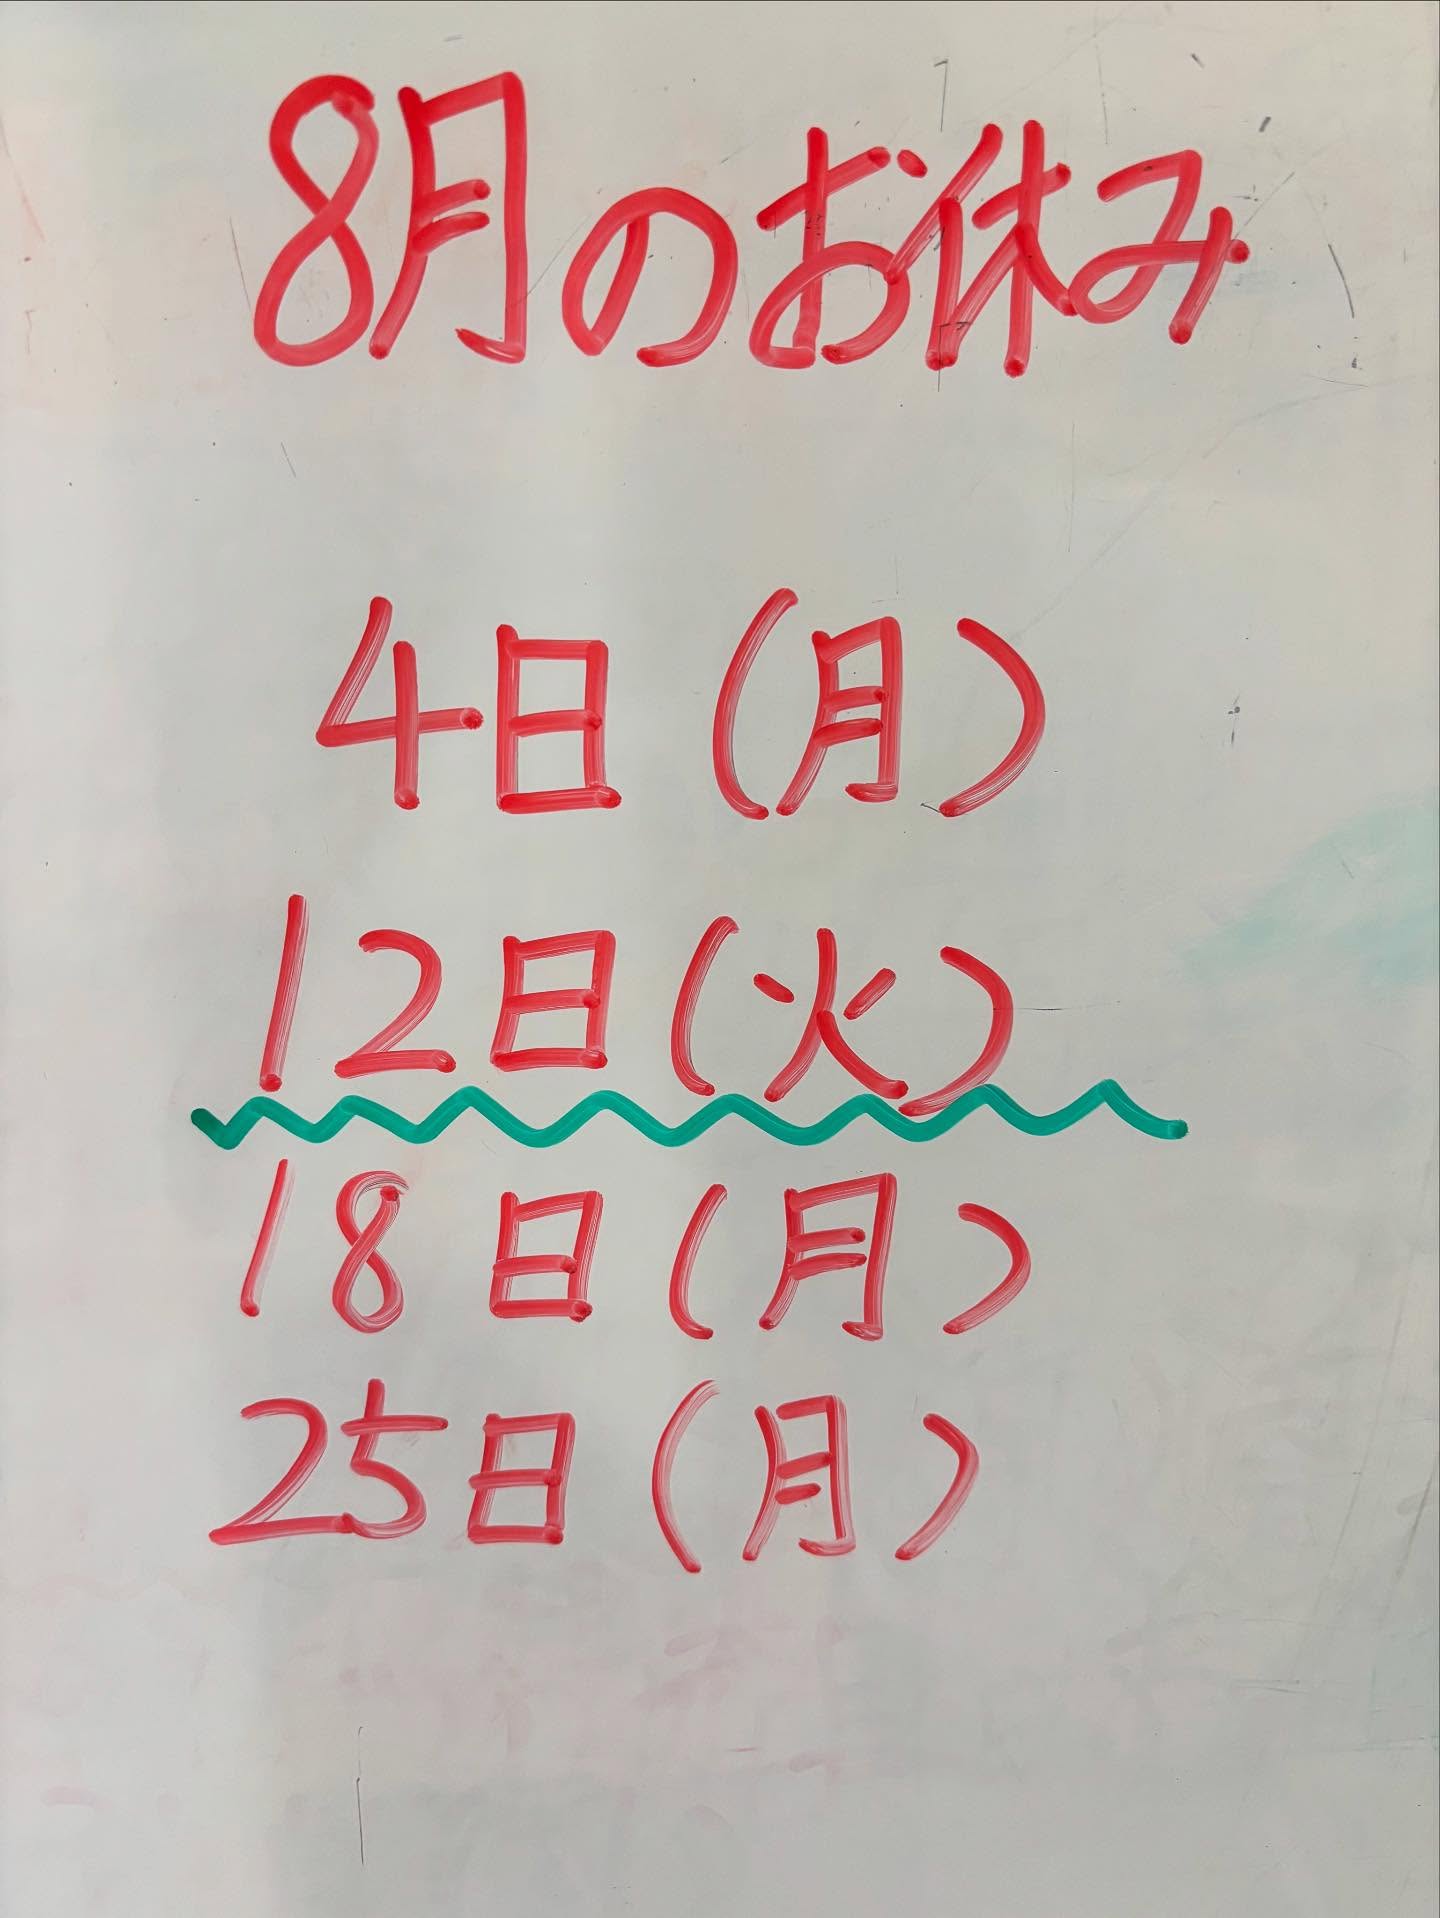 8月のお休み
4日(月)
12日(火)
18日(月)
25日(月)